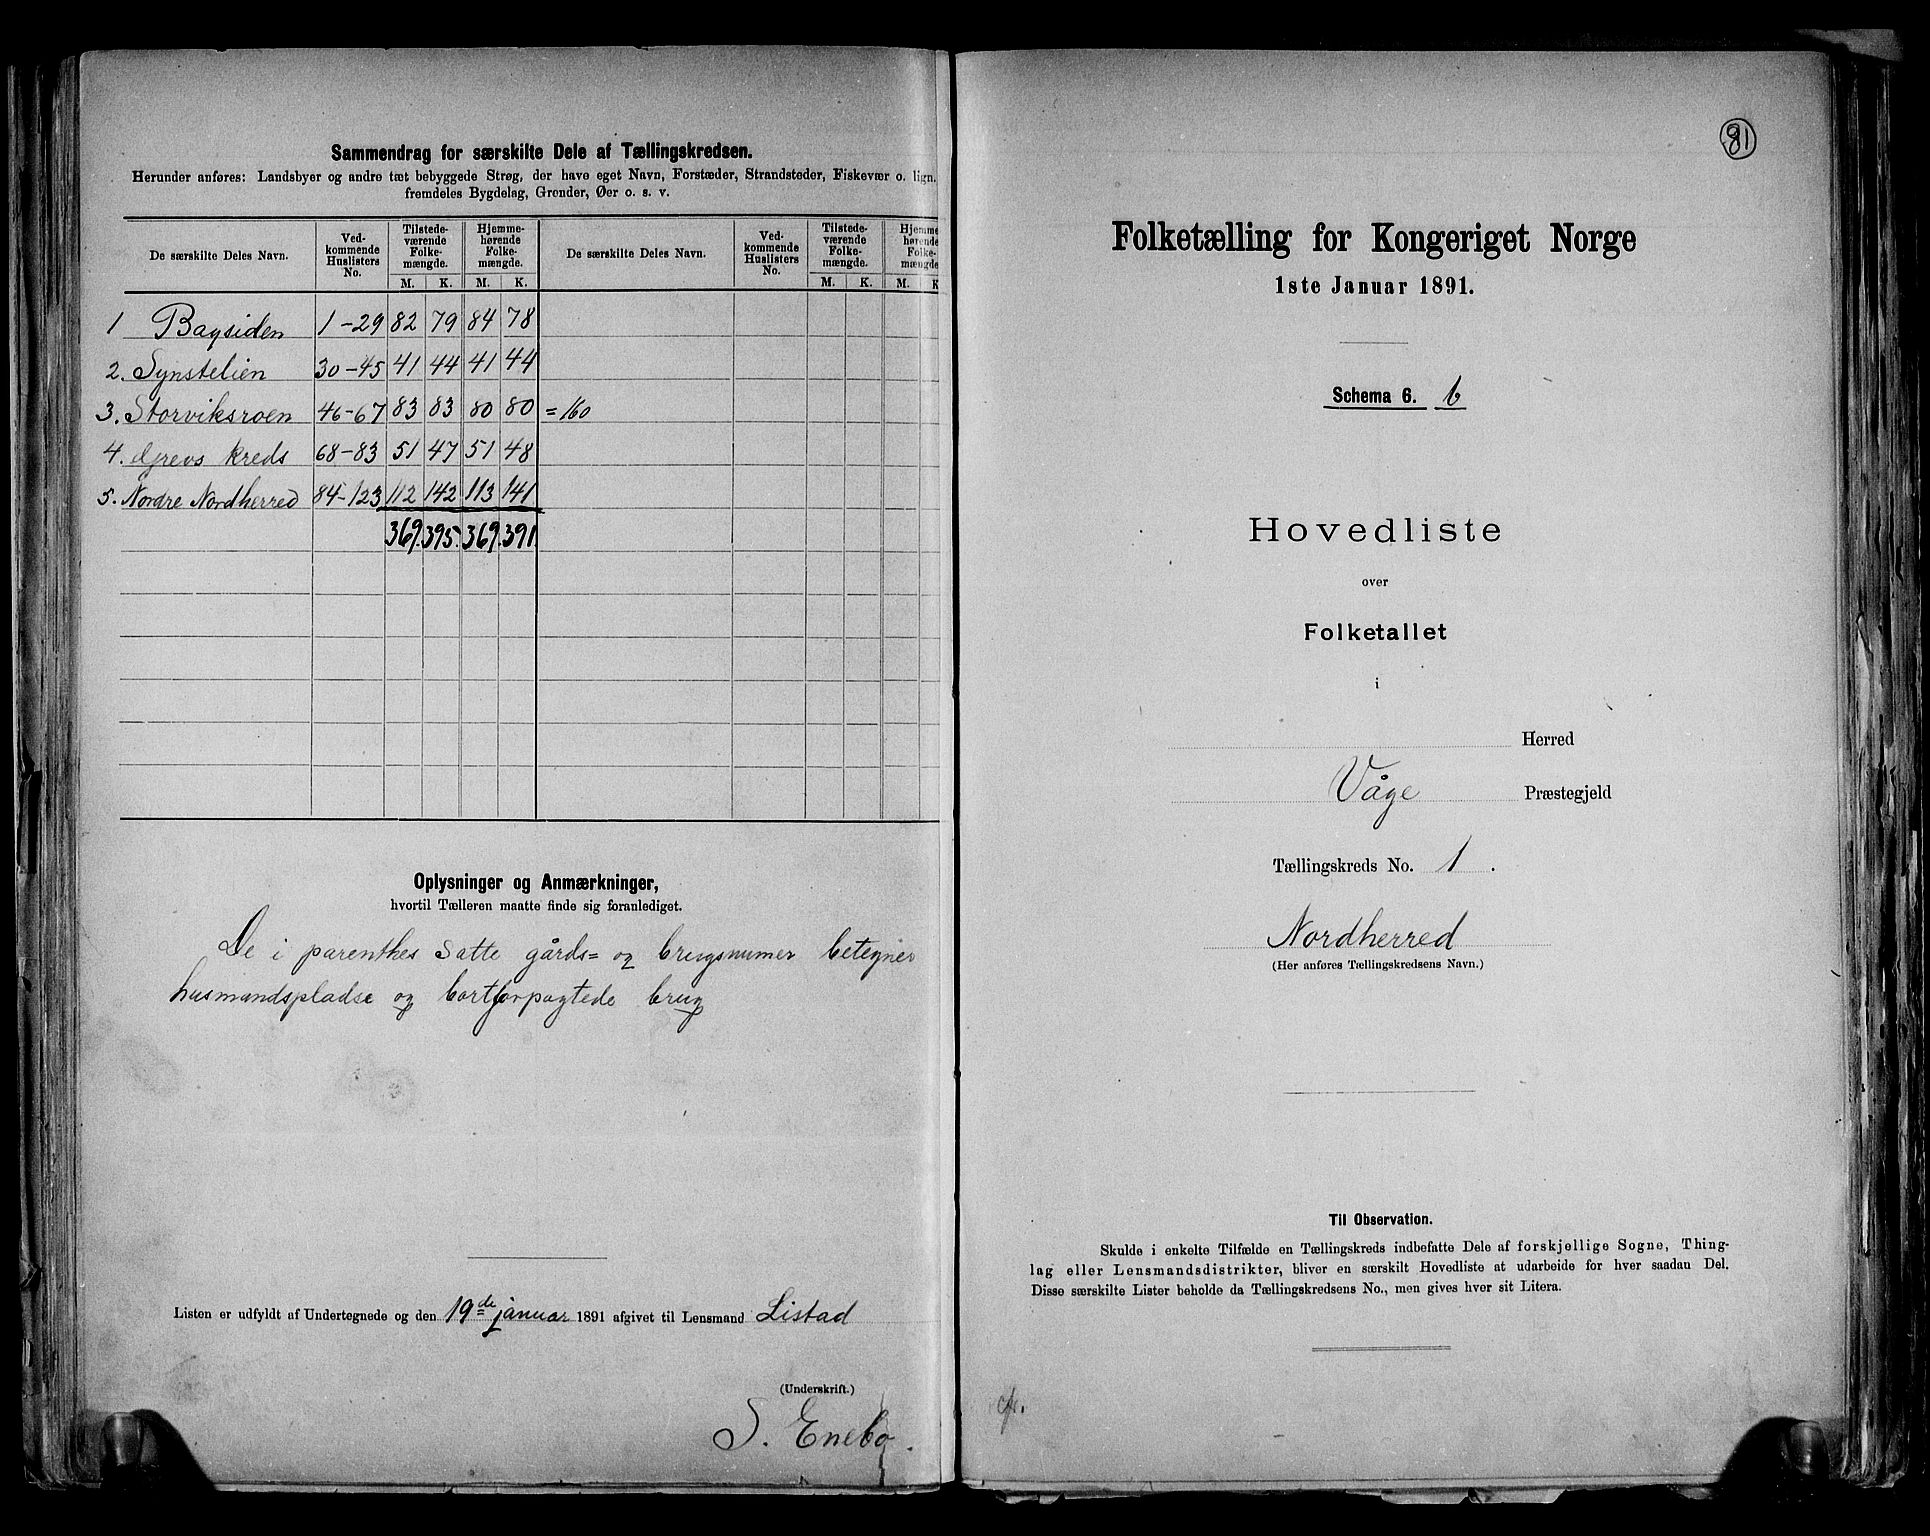 Sammendrag for særskilte Dele af Tællingskredsen.
Herunder anføres: Landsbyer og andre tæt bebyggede Strøg, der have eget Navn, Forstæder, Strandsteder, Fiskevær o. lign.
fremdeles Bygdelag, Grender, Øer o. s. v.
De særskilte Deles Navn. Ved-kommende Huslisters No. Tilstede-værende Folke-mængde. Hjemme-hørende Folke-mængde. De særskilte Deles Navn. Ved-kommende Huslisters No. Tilstede-værende Folke-mængde. Hjemme-hørende Folke-mængde
M. K. M. K. M. K. M. K
1 Baysiden 1-29 82 79 84 78
2. Synstelien 30-45 41 44 41 44
3. Storviksroen 46-67 83 83 80 80 =160
4. Grevs kreds 68-83 51 47 51 48
5. Nordre Nordherred 84-123 112 142 113 141
369. 395. 369. 391.
Oplysninger og Anmærkninger,
hvortil Tælleren maatte finde sig foranlediget.
De i parenthes satte gårds= og brugsnumer betegner
husmandspladse og bortforpagtede brug
Listen er udfyldt af Undertegnede og den 19de januar 1891 afgivet til Lensmand Listad
(Underskrift.)
S. Enebo.
81
Folketælling for Kongeriget Norge
1ste Januar 1891.
Schema 6. b
Hovedliste
over
Folketallet
i
Herred
Våge Præstegjeld
Tællingskreds No. 1.
Nordherred
(Her anføres Tællingskredsens Navn.)
Til Observation.
Skulde i enkelte Tilfælde en Tællingskreds indbefatte Dele af forskjellige Sogne, Thing-
lag eller Lensmandsdistrikter, bliver en særskilt Hovedliste at udarbeide for hver saadan Del.
Disse særskilte Lister beholde da Tællingskredsens No., men gives hver sit Litera.